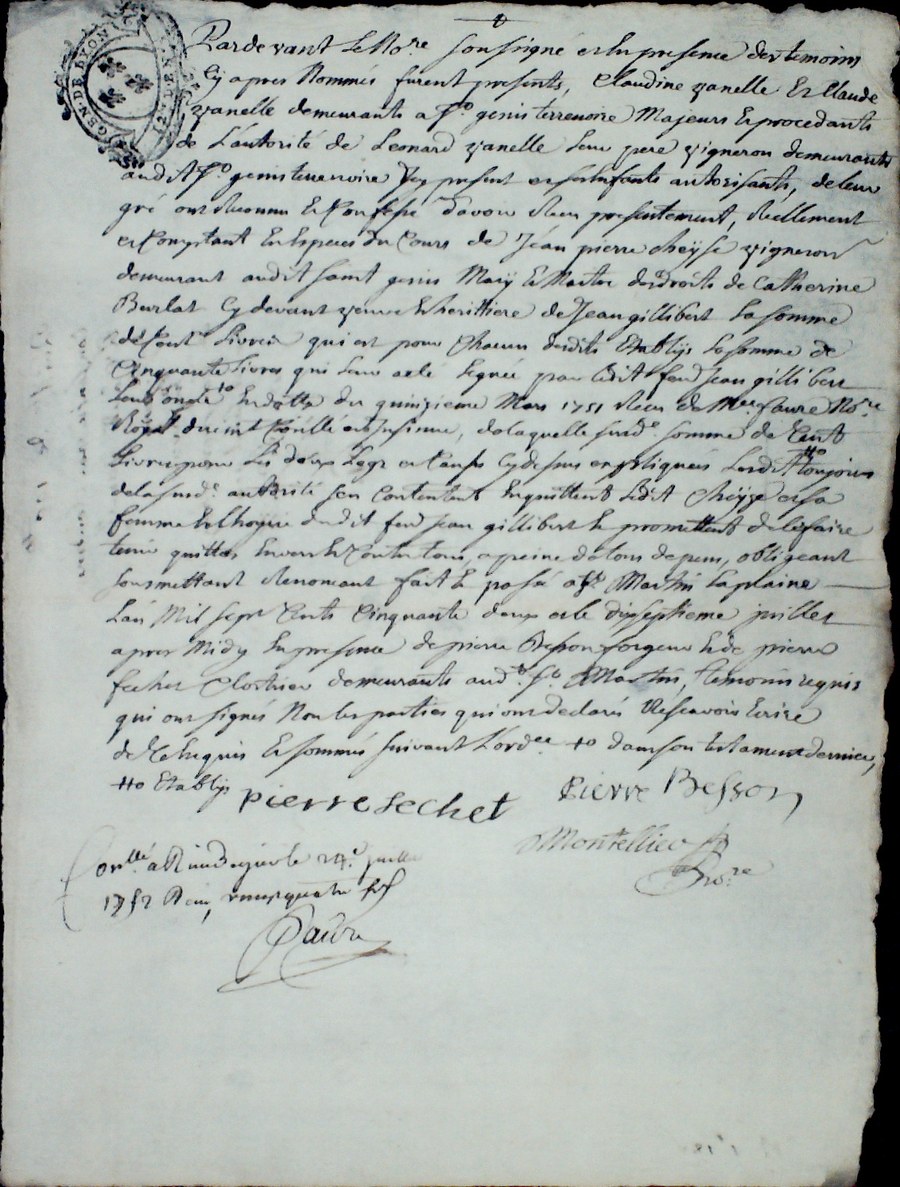 GEN. DE LYON
Pardevant Le No.re soussigné et en presence des temoins
Cy apres Nommés furent presents, Claudine vanelle Et Claude
vanelle demeurants a St. genis terrenoire Majeurs Et procedants
de L'autorité de Leonard vanelle Leur pere vigneron demeurants
audit St genis terrenoire Icy present et ses enfants autorisants, de leur
gré ont Reconnu Et Confessé d'avoir Receu presentement, Reellement
et Comptant En Especes du Cours de Jean pierre cheyse vigneron
demeurant audit saint genis Mary Et Maitre des droits de Catherine
Burlat Cy devant veuve Et herittiere de Jean gillibert La somme
de Cent Livres qui est pour Chacun desdits Etablys La somme de
Cinquante Livres qui Leur a eté Leguée par Ledit feu Jean gillibert
Leur oncle ++o du quinzieme Mars 1751 Receu de Me faure No.re
Royal , de laquelle susd.e somme de Cent
Livres pour Les deux Legs et Causes Cy dessus expliquées Lesdits ++o toujours
de la susd.e autorité sen Contentent En quittent Ledit Cheyze et sa
femme Et lhoyrie dudit feu Jean gillibert Et promettent de Les faire
tenir quittes Envers Et Contre tous, a peine de tous depens, obligeant
soumettant Renonceant fait Et passé a St Martin La plaine
Lan Mil sept Cents Cinquante deux et le dixseptieme juillet
apres Midy En presence de pierre Besson forgeur Et de pierre
sechet Cloutier demeurants aud.t St. Martin, temoins requis
qui ont signés Non Les parties qui ont declarés Ne scavoir Ecrire
de Ce Enquis Et sommés suivant Lord.ce +o dans son testament dernier,
++o Etablys
pierre sechet Pierre Besson
Montellier
No.re
Con.llé a Rivedegier le 24.e juillet
1752 Receu vingt quatre sols